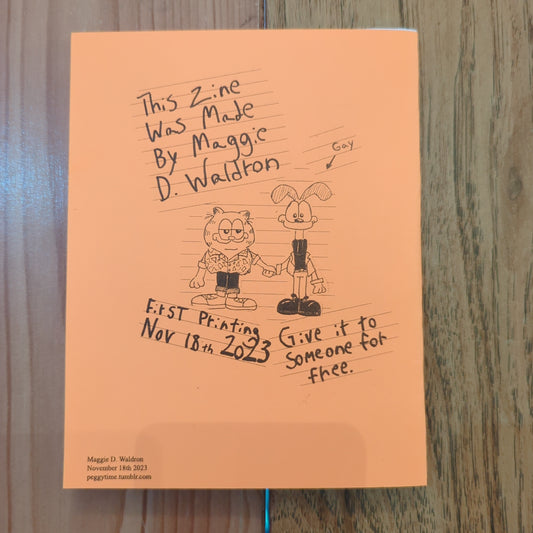 This Zine
Was Made
By Maggie
D. Waldron
Gay
First Printing
Nov 18th 2023
Give it to
someone for
free.
Maggie D. Waldron
November 18th 2023
peggytime.tumblr.com